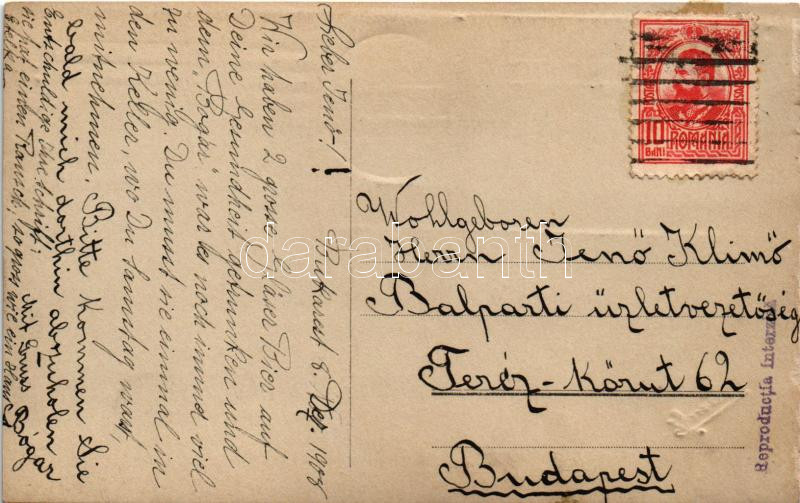 Bukarest 8. Dez. 1908
Lieber Jenö!!
Wir haben 2 grosse Gläser Bier auf
Deine Gesundheit getrunken und
dem „Bogár“ war es noch immer viel
zu wenig. Du musst sie einmal in
den Keller, wo Du Samstag warst,
mitnehmen. Bitte kommen Sie
bald mich dorthin abzuholen
Mit Gruss Bogár
Entschuldige ihre Schrift;
sie hat einen Rausch, so gross wie ein Haus
10
BANI
ROMANIA
Wohlgeboren
Herrn Jenö Klimó
Balparti üzletvezetőség
Teréz-Körut 62
Budapest
Reproducția interzisă
darabanth